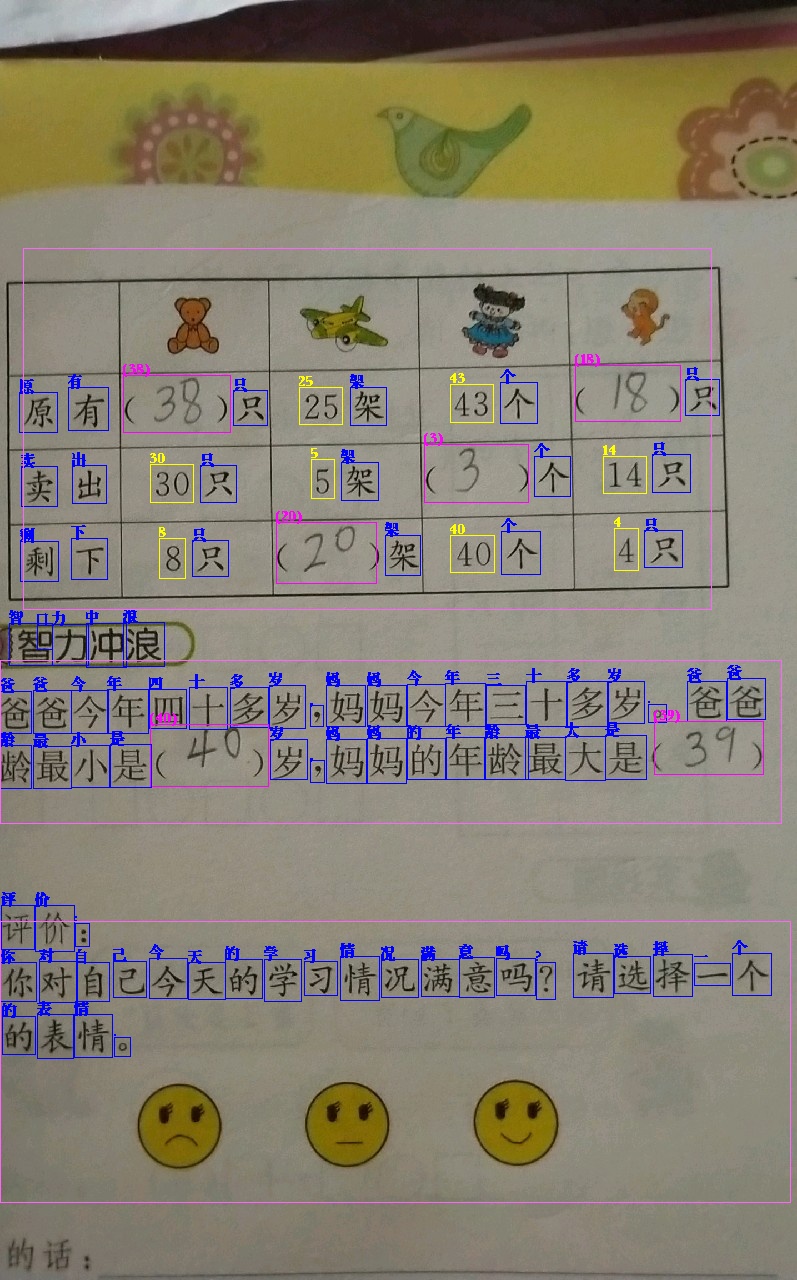 原有 (38)只 25架 43个 (18)只
卖出 30只 5架 (3)个 14只
剩下 8只 (20)架 40个 4只
智力冲浪
爸爸今年四十多岁，妈妈今年三十多岁。爸爸
龄最小是(40)岁，妈妈的年龄最大是(39)
评价：
你对自己今天的学习情况满意吗？请选择一个
的表情。
的话：